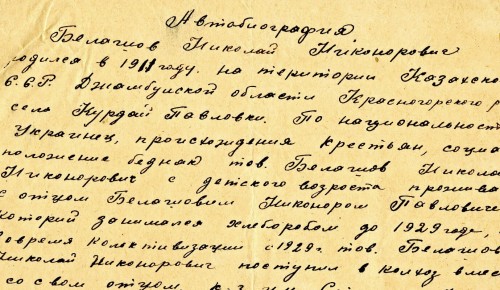 Автобиография
Белашов Николай Никонорович
родился в 1911 году. на територии Казахско
С.С.Р. Джамбулской области Красногорского р
село Курдай Павловки. По национальност
Украинец, происхождения крестьян, социа
положение беднак тов. Белашов Никола
Никонорович с детского возроста прожива
с отцом Белашовим Никонором Павлович
который занимался хлеборобом до 1929 года,
Вовремя колективизации с 1929 г. тов. Белашов
Николай Никонорович поступил в колхоз вмес
со свом отцом